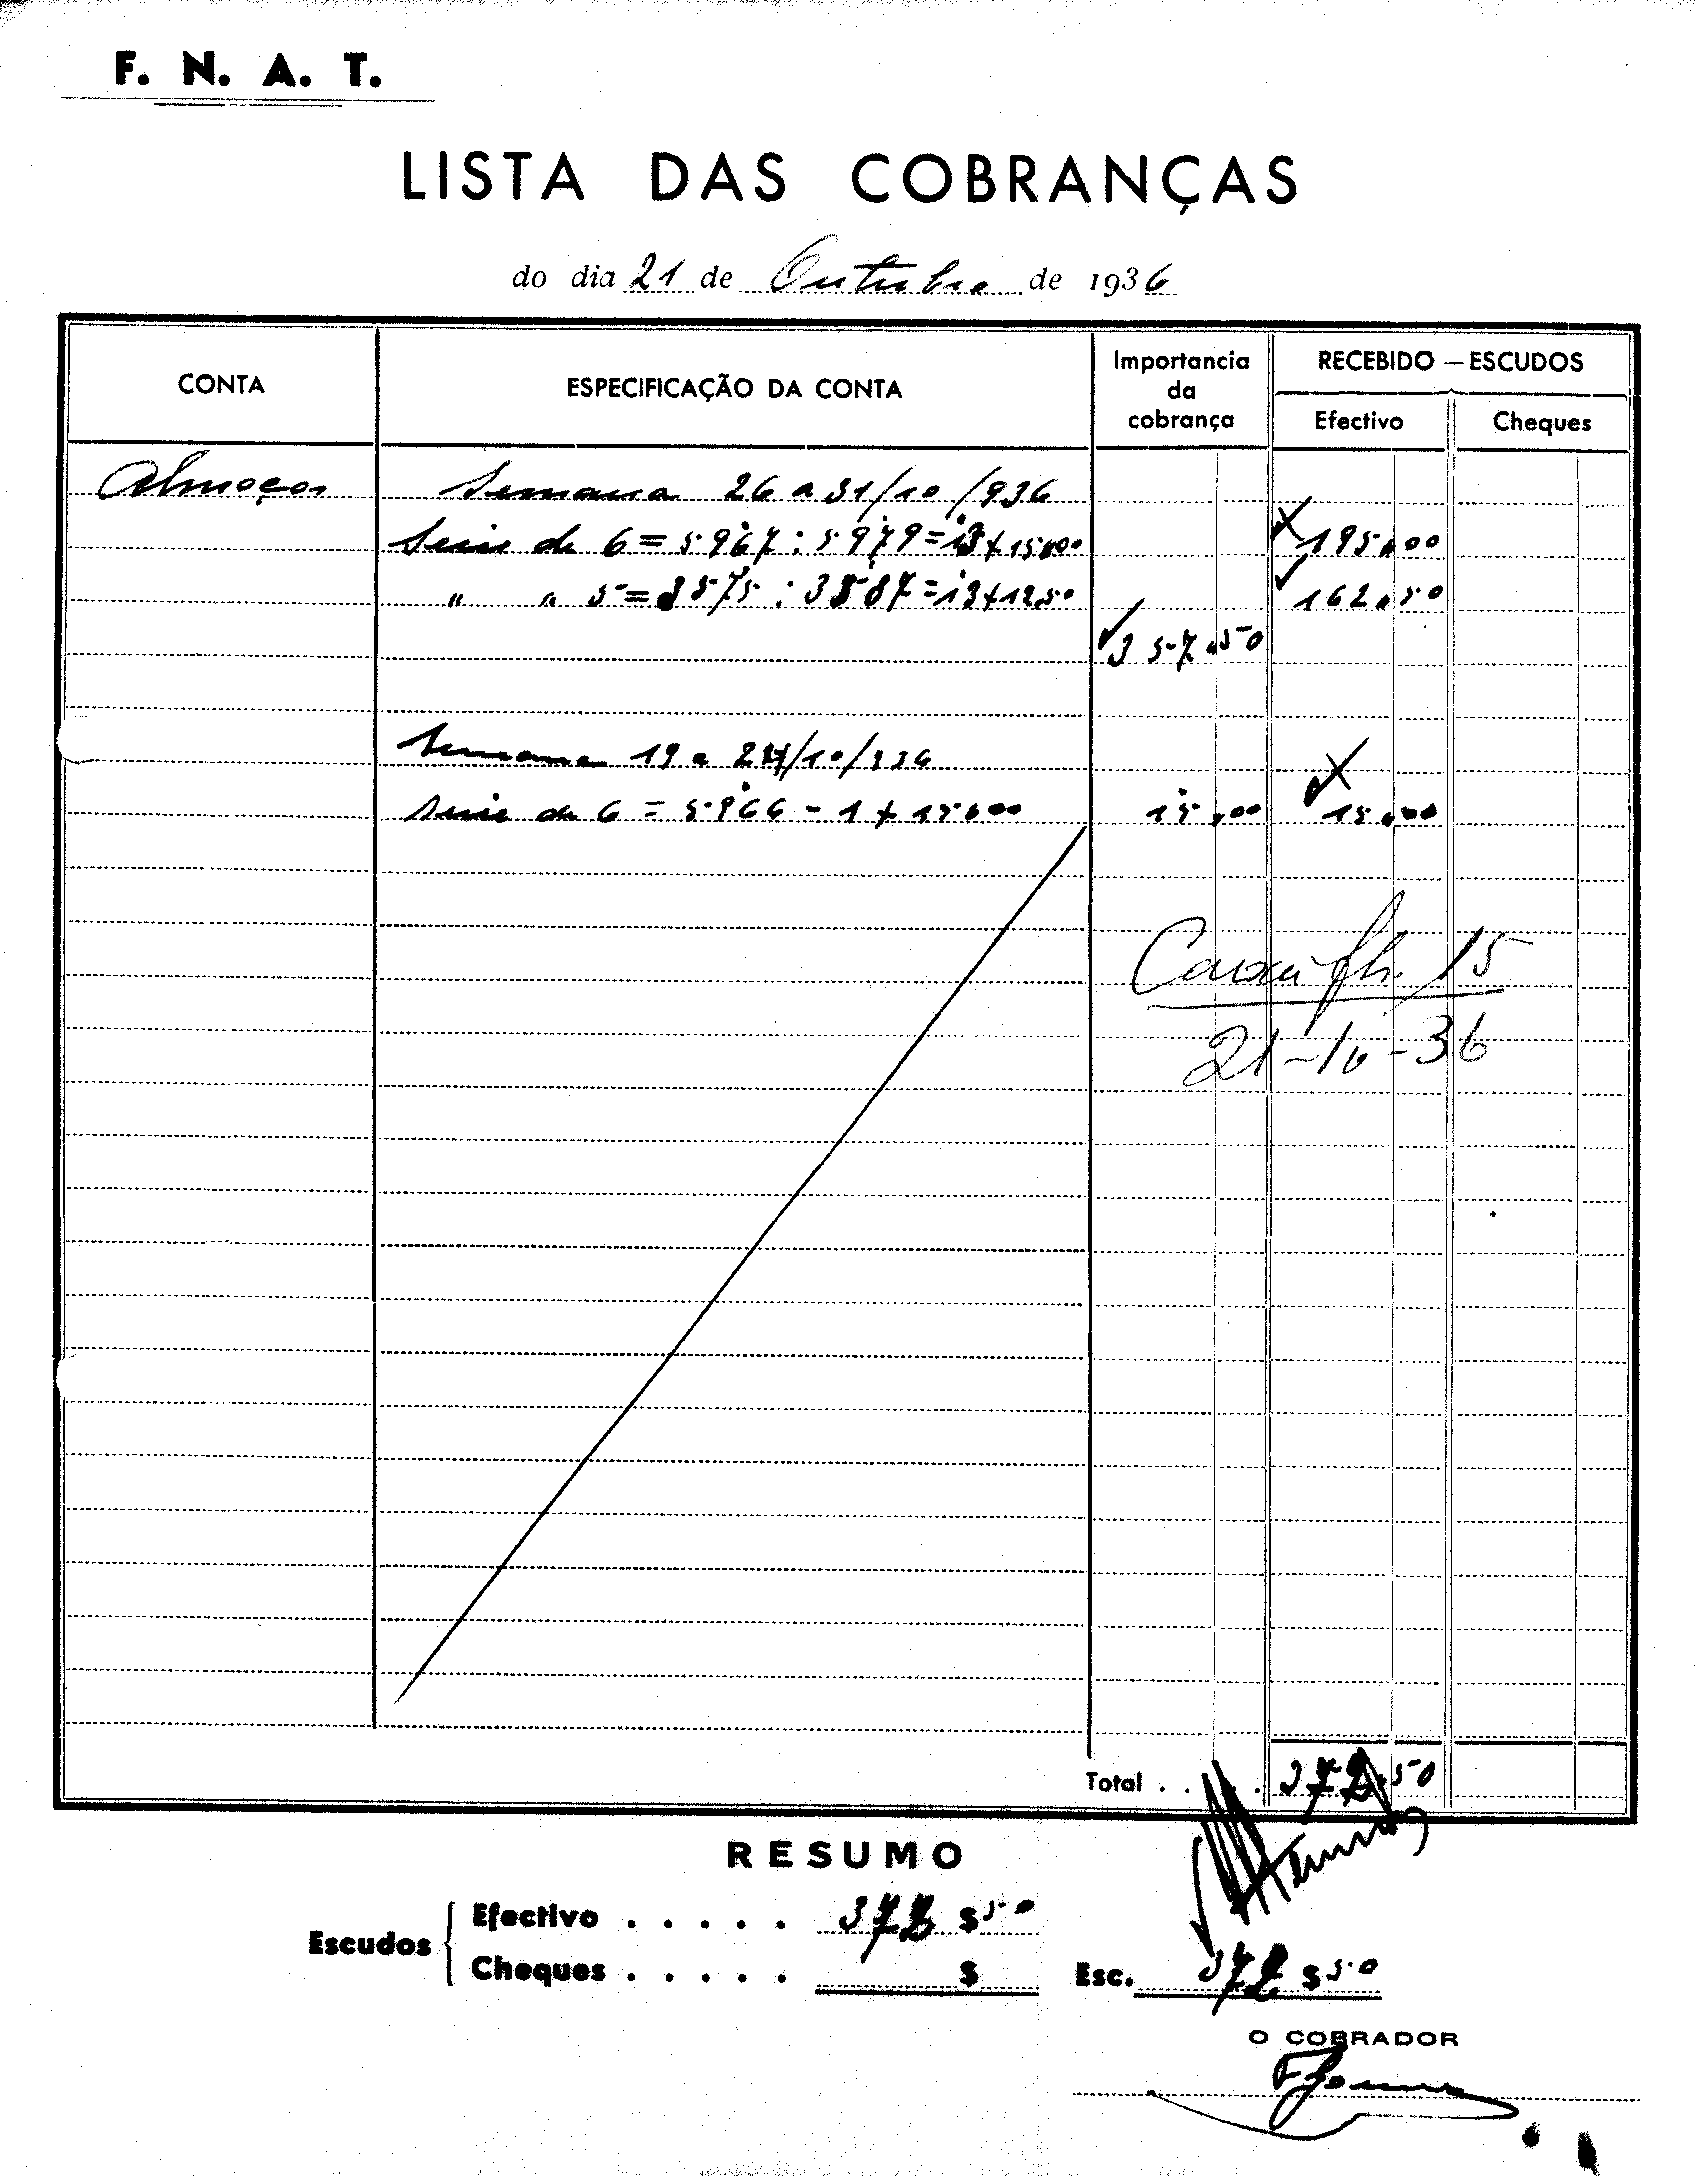 F. N. A. T.
LISTA DAS COBRANÇAS
do dia 21 de Outubro de 1936
CONTA
ESPECIFICAÇÃO DA CONTA
Importancia da cobrança
RECEBIDO — ESCUDOS
Efectivo
Cheques
Almoços Semana 26 a 31/10/936
Serie de 6 = 5.967 : 5.979 = 13 x 15.00 195.00
" " 5 = 3575 : 3587 = 13 x 12.50 162.50
357.50
Semana 19 a 24/10/936
Serie de 6 = 5.966 - 1 x 15.00 15.00 15.00
Caixa fls. 15
21-10-36
Total . . . . 372.50
RESUMO
Escudos
Efectivo . . . . . 372 $ 50
Cheques . . . . . $
Esc. 372 $ 50
O COBRADOR